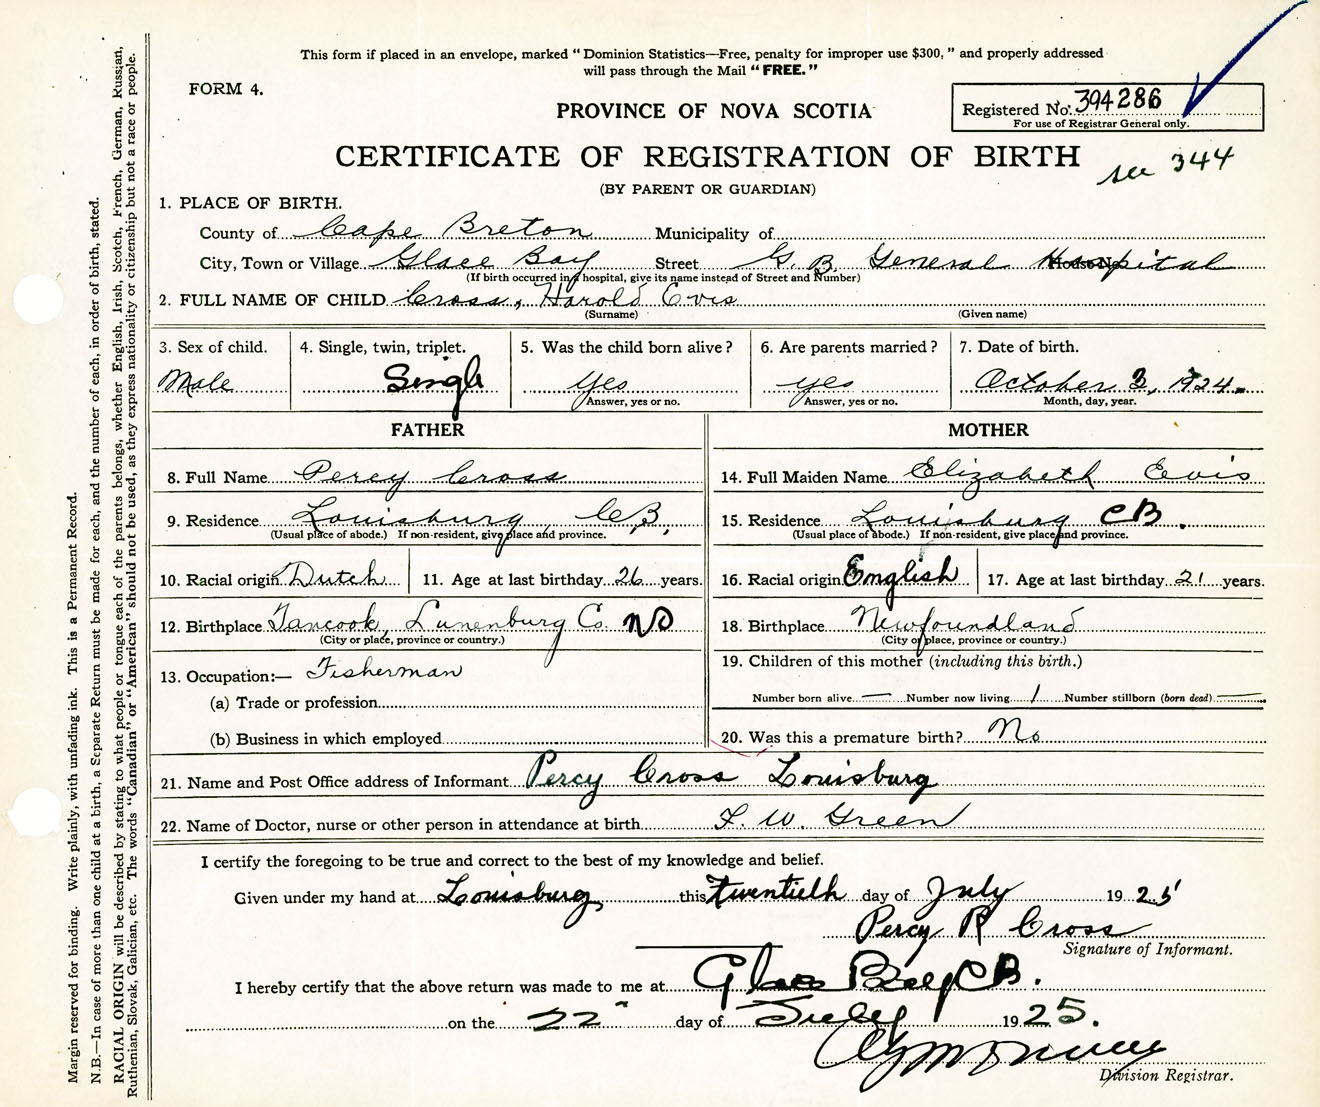 This form if placed in an envelope, marked "Dominion Statistics—Free, penalty for improper use $300," and properly addressed
will pass through the Mail "FREE."
FORM 4.
PROVINCE OF NOVA SCOTIA
Registered No. 394286
For use of Registrar General only.
CERTIFICATE OF REGISTRATION OF BIRTH
see 344
(BY PARENT OR GUARDIAN)
1. PLACE OF BIRTH.
County of Cape Breton Municipality of
City, Town or Village Glace Bay Street G. B. General Hospital House No.
(If birth occurred in a hospital, give its name instead of Street and Number)
2. FULL NAME OF CHILD Cross, Harold Evis
(Surname) (Given name)
3. Sex of child. 4. Single, twin, triplet. 5. Was the child born alive? 6. Are parents married? 7. Date of birth.
Male Single Yes Yes October 3, 1924.
Answer, yes or no. Answer, yes or no. Month, day, year.
FATHER MOTHER
8. Full Name Percy Cross 14. Full Maiden Name Elizabeth Evis
9. Residence Louisburg, C.B. 15. Residence Louisburg CB.
(Usual place of abode.) If non-resident, give place and province. (Usual place of abode.) If non-resident, give place and province.
10. Racial origin Dutch 11. Age at last birthday 26 years. 16. Racial origin English 17. Age at last birthday 21 years.
12. Birthplace Tancook, Lunenburg Co. NS 18. Birthplace Newfoundland
(City or place, province or country.) (City or place, province or country.)
13. Occupation:— Fisherman 19. Children of this mother (including this birth.)
(a) Trade or profession Number born alive — Number now living 1 Number stillborn (born dead) —
(b) Business in which employed 20. Was this a premature birth? No
21. Name and Post Office address of Informant Percy Cross Louisburg
22. Name of Doctor, nurse or other person in attendance at birth F. W. Green
I certify the foregoing to be true and correct to the best of my knowledge and belief.
Given under my hand at Louisburg this twentieth day of July 1925
Percy R Cross
Signature of Informant.
I hereby certify that the above return was made to me at Glace Bay CB.
on the 22" day of July 1925.
Division Registrar.
Margin reserved for binding. Write plainly, with unfading ink. This is a Permanent Record.
N.B.—In case of more than one child at a birth, a Separate Return must be made for each, and the number of each, in order of birth, stated.
RACIAL ORIGIN will be described by stating to what people or tongue each of the parents belongs, whether English, Irish, Scotch, French, German, Russian,
Ruthenian, Slovak, Galician, etc. The words "Canadian" or "American" should not be used, as they express nationality or citizenship but not a race or people.